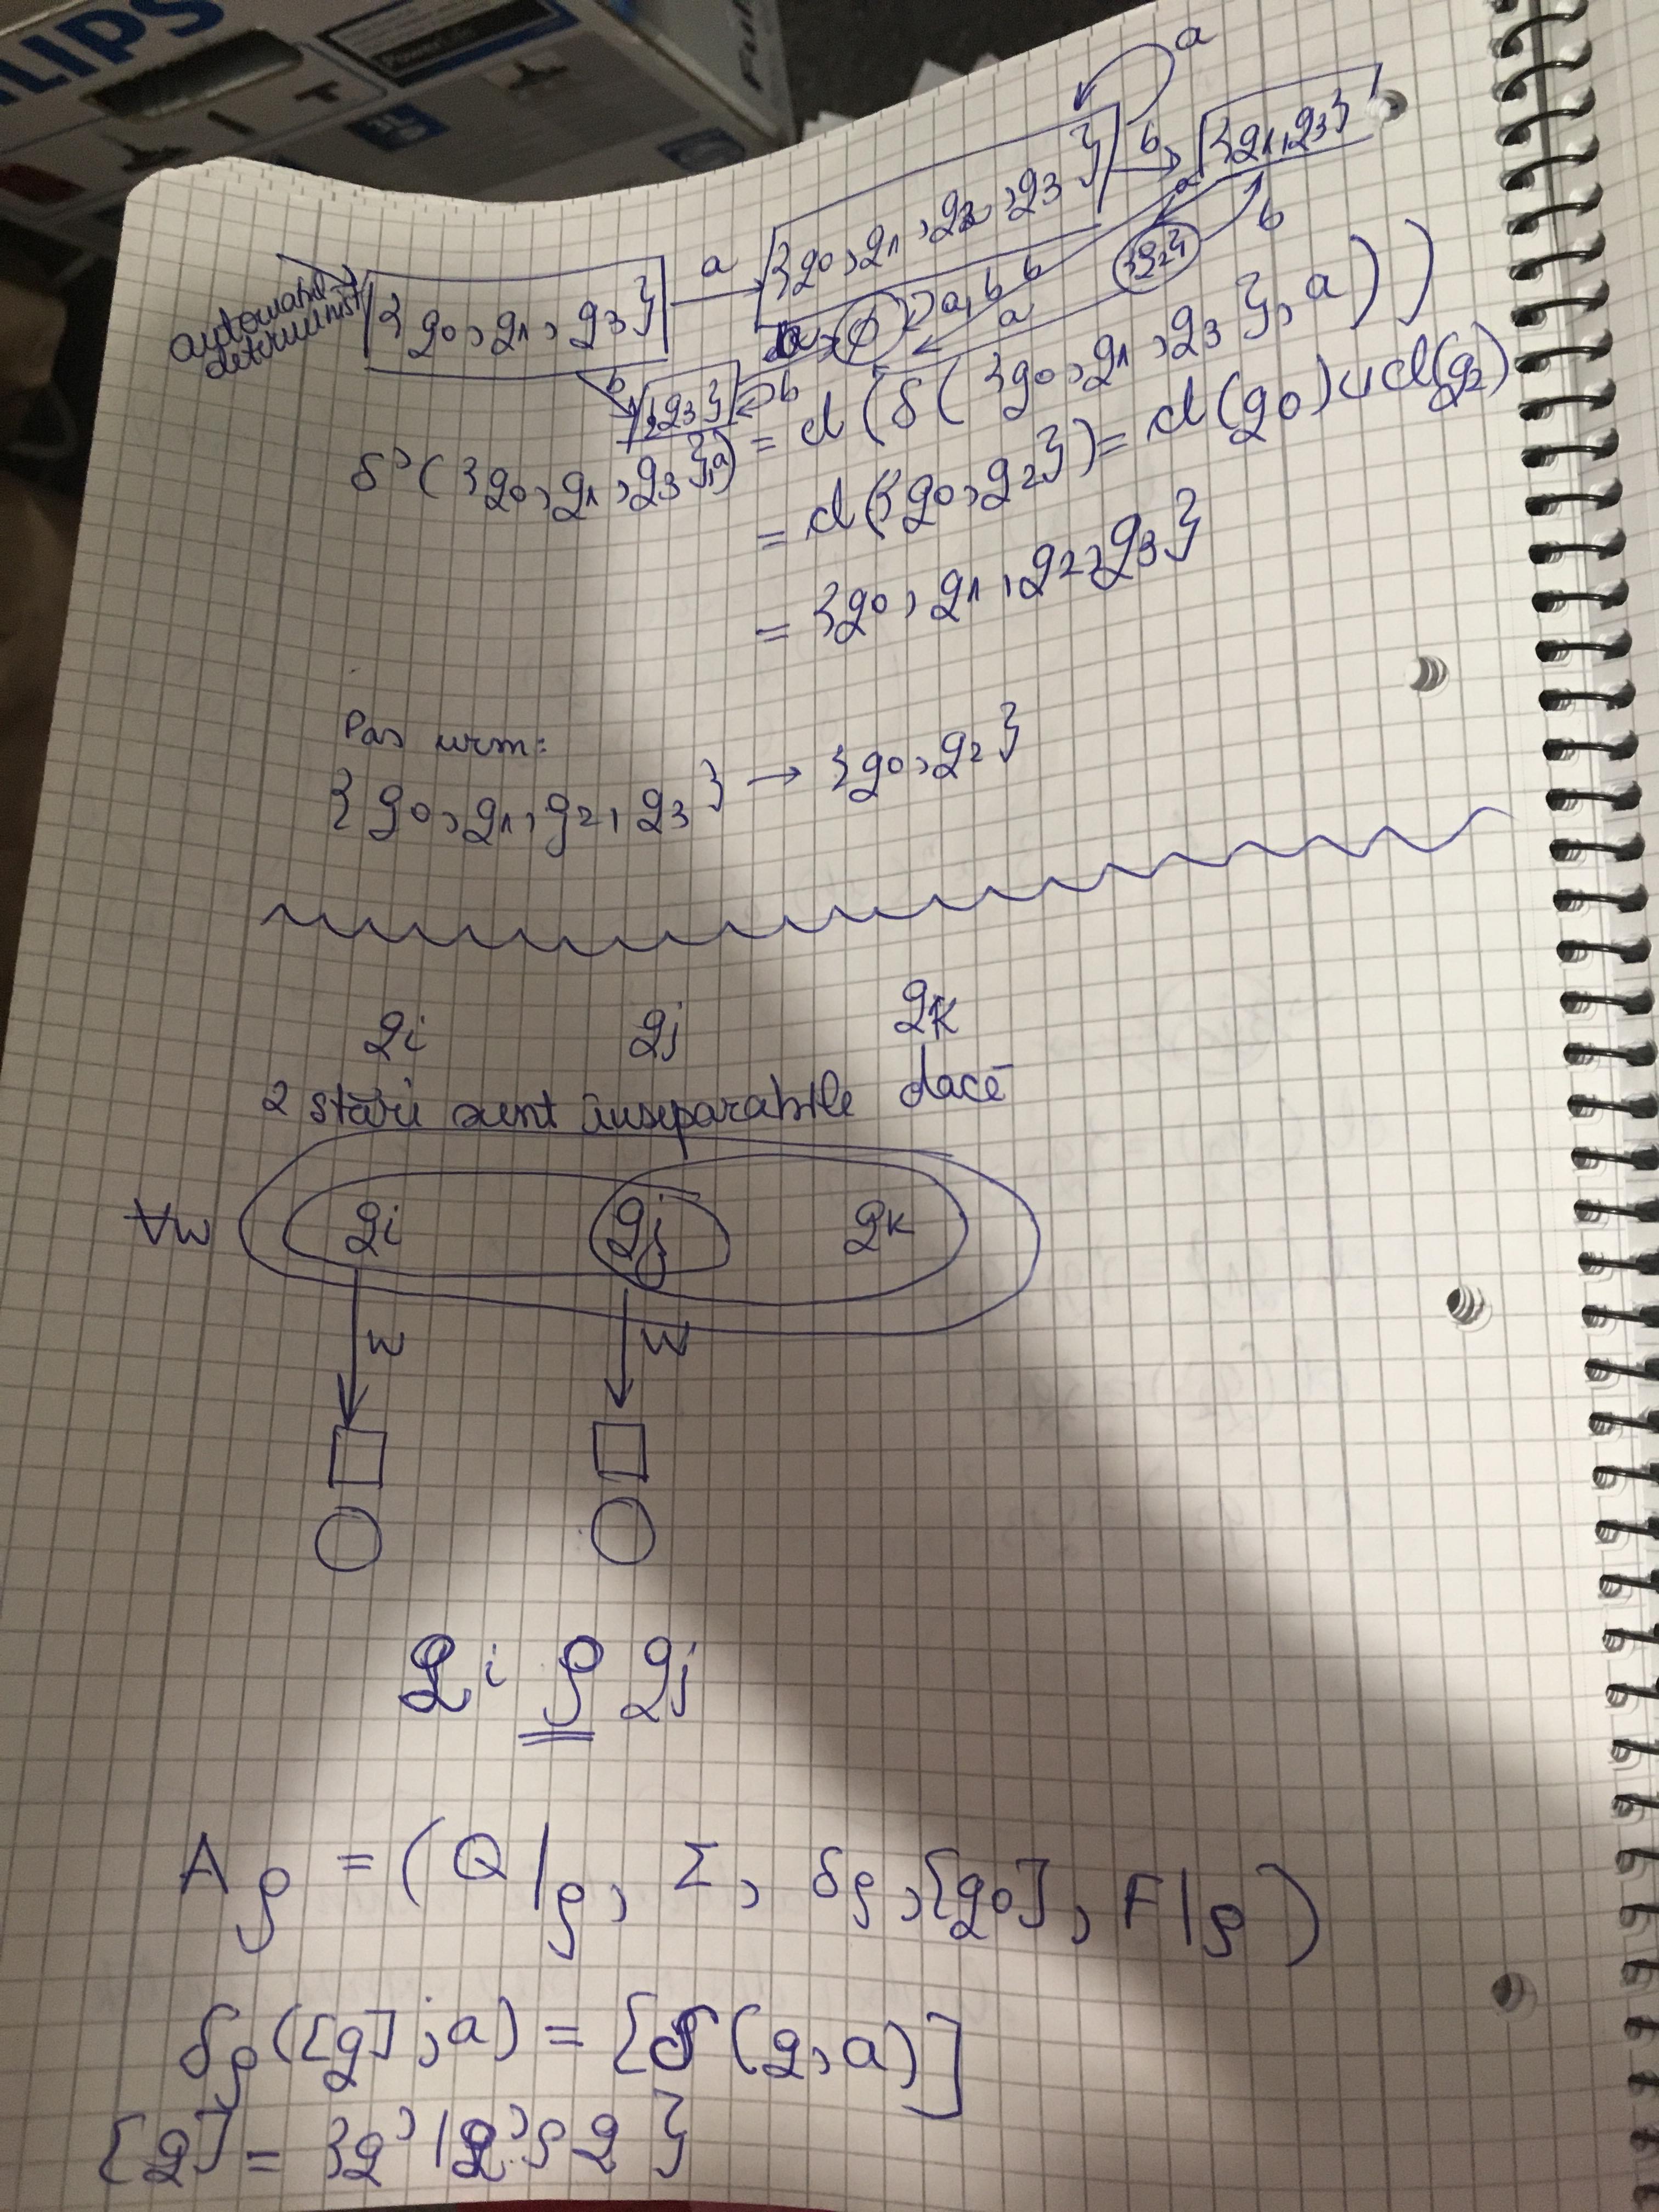 automatul
determinist
{q0, q1, q3} a {q0, q1, q2, q3} a b {q1, q3}
b {q3} b a ∅ a, b a b {q2} a b
δ'({q0, q1, q3}, a) = cl(δ({q0, q1, q3}, a))
= cl({q0, q2}) = cl(q0) ∪ cl(q2)
= {q0, q1, q2, q3}
Pas urm:
{q0, q1, q2, q3} → {q0, q2}
qi qj qk
2 stări sunt inseparabile dacă
∀w qi qj qk
w w
qi ρ qj
Aρ = (Q|ρ, Σ, δρ, [q0], F|ρ)
δρ([q], a) = [δ(q, a)]
[q] = {q' | q' ρ q}